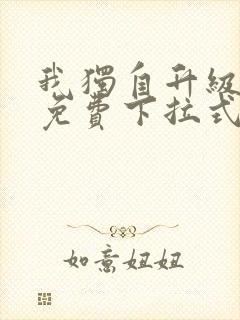 我獨自升級
免費下拉式
如意妞妞